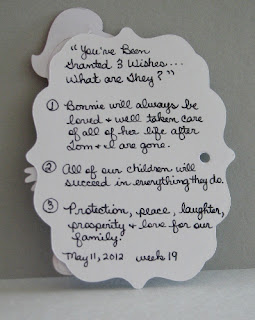 "You've Been
Granted 3 Wishes....
What are They?"
① Bonnie will always be
loved & well taken care
of all of her life after
Tom & I are gone.
② All of our children will
succeed in everything they do.
③ Protection, peace, laughter,
prosperity & love for our
family.
May 11, 2012 week 19